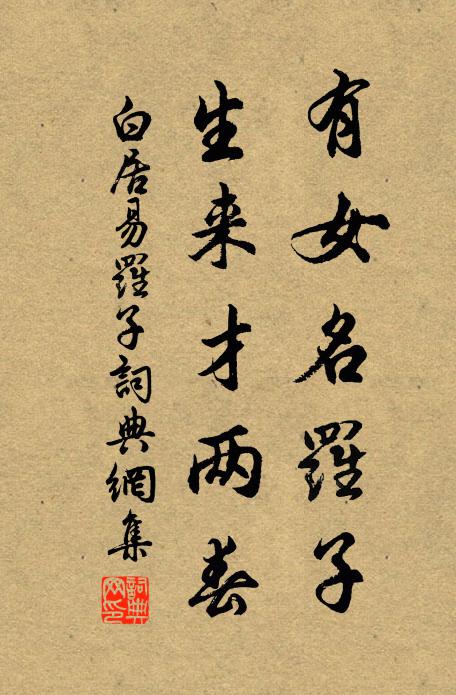 有女名羅子
生来才两春
白居易羅子詞典網集
詞典网印